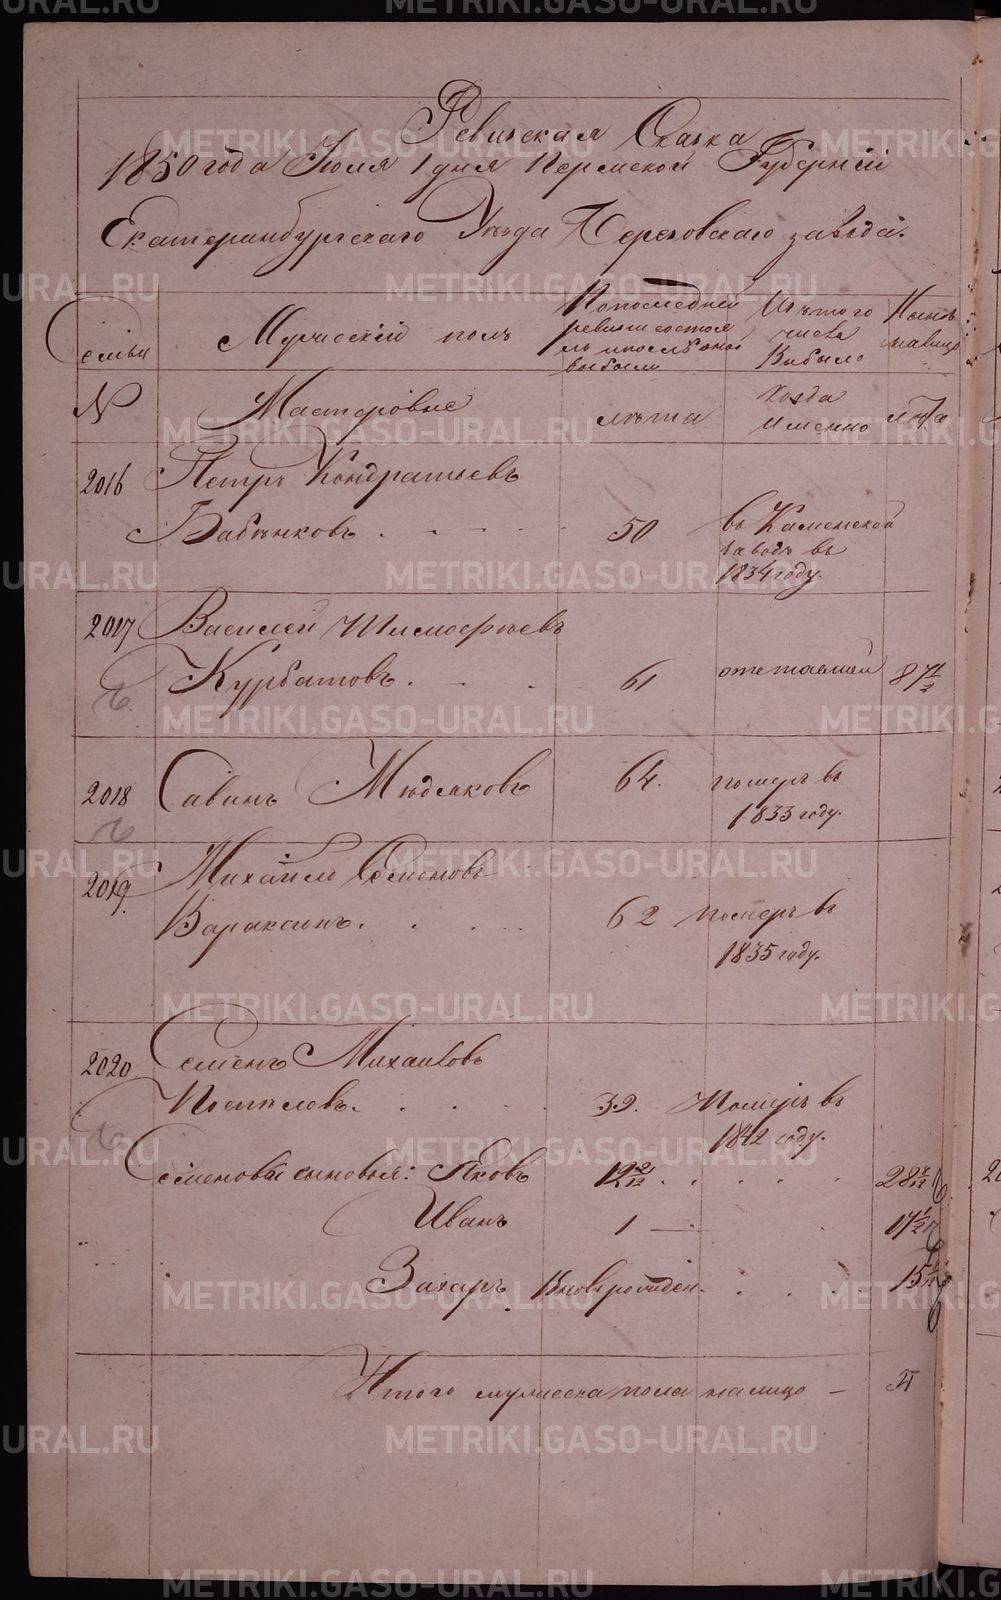 Ревизская Сказка
1850 года Июля 1 дня Пермской Губернiи
Екатеринбургскаго Уезда Березовскаго завода.
Семьи
Мужескiй полъ
По последней ревизiи состояло и после оной выбыло
Изъ того числа Выбыло
Ныне налицо
№
Мастеровые
лета
Когда Именно
лета
2016
Петръ Кондратьевъ
Бабинковъ
50
въ Каменской
заводъ въ
1834 году.
2017
Василей
Курбатовъ
61
отставной
87 1/2
2018
Савинъ
64.
померъ въ
1833 году.
2019
Михайло Семеновъ
Вараксинъ
62
померъ въ
1835 году.
2020
Семенъ Михайловъ
Поспеловъ
39.
Померъ въ
1842 году.
Семеновы сыновья: Яковъ
12 2/12
28
Иванъ
1 —
17 1/2
Захаръ
Вновърожден.
15
Итого мужеска пола налицо —
METRIKI.GASO-URAL.RU